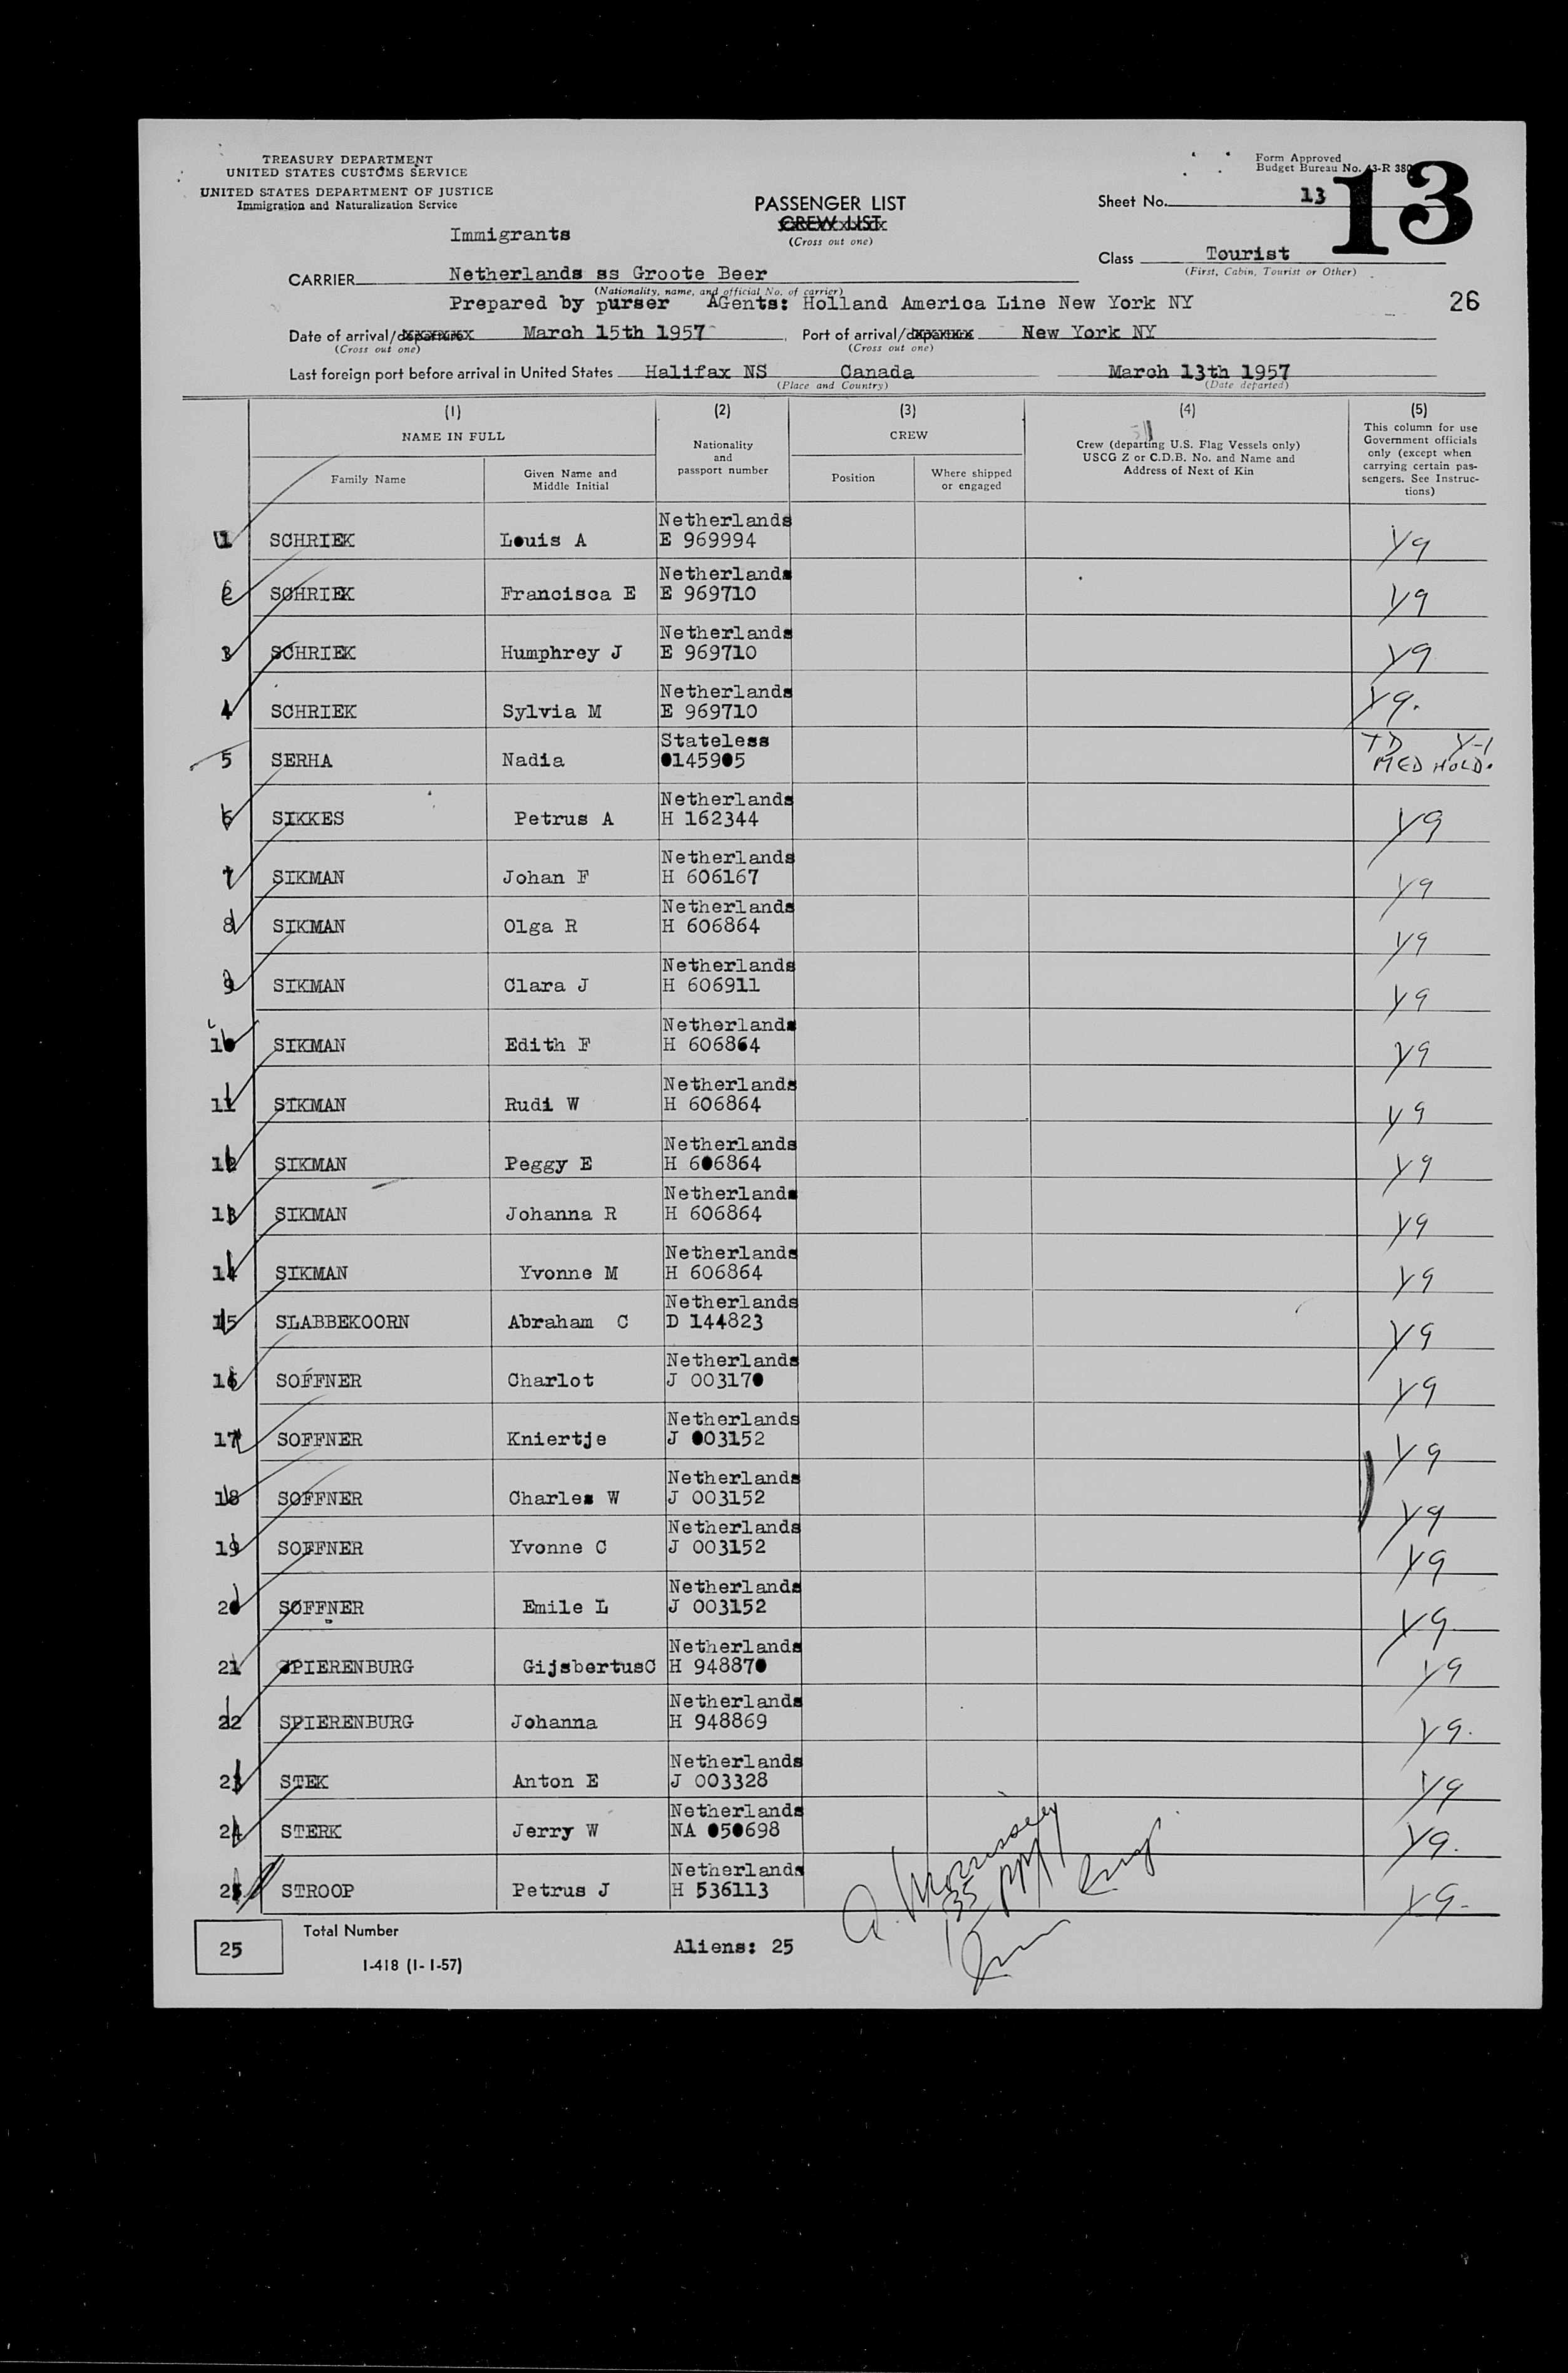 TREASURY DEPARTMENT
UNITED STATES CUSTOMS SERVICE
UNITED STATES DEPARTMENT OF JUSTICE
Immigration and Naturalization Service
Form Approved
Budget Bureau No. 43-R 380
13
PASSENGER LIST
CREW LIST
(Cross out one)
Sheet No. 13
Immigrants
Class Tourist
(First, Cabin, Tourist or Other)
CARRIER Netherlands ss Groote Beer
(Nationality, name, and official No. of carrier)
Prepared by purser AGents: Holland America Line New York NY 26
Date of arrival/departure March 15th 1957, Port of arrival/departure New York NY
(Cross out one) (Cross out one)
Last foreign port before arrival in United States Halifax NS Canada March 13th 1957
(Place and Country) (Date departed)
(1) (2) (3) (4) (5)
NAME IN FULL
Family Name
Given Name and
Middle Initial
Nationality
and
passport number
CREW
Position
Where shipped
or engaged
Crew (departing U.S. Flag Vessels only)
USCG Z or C.D.B. No. and Name and
Address of Next of Kin
This column for use
Government officials
only (except when
carrying certain pas-
sengers. See Instruc-
tions)
Netherlands
1 SCHRIEK Louis A E 969994 Y9
Netherlands
2 SCHRIEK Francisca E E 969710 Y9
Netherlands
3 SCHRIEK Humphrey J E 969710 Y9
Netherlands
4 SCHRIEK Sylvia M E 969710 Y9.
Stateless TD Y-1
5 SERHA Nadia 0145905 MED HOLD.
Netherlands
6 SIKKES Petrus A H 162344 Y9
Netherlands
7 SIKMAN Johan F H 606167 Y9
Netherlands
8 SIKMAN Olga R H 606864 Y9
Netherlands
9 SIKMAN Clara J H 606911 Y9
Netherlands
10 SIKMAN Edith F H 606864 Y9
Netherlands
11 SIKMAN Rudi W H 606864 Y9
Netherlands
12 SIKMAN Peggy E H 606864 Y9
Netherlands
13 SIKMAN Johanna R H 606864 Y9
Netherlands
14 SIKMAN Yvonne M H 606864 Y9
Netherlands
15 SLABBEKOORN Abraham C D 144823 Y9
Netherlands
16 SOFFNER Charlot J 003170 Y9
Netherlands
17 SOFFNER Kniertje J 003152 Y9
Netherlands
18 SOFFNER Charles W J 003152 Y9
Netherlands
19 SOFFNER Yvonne C J 003152 Y9
Netherlands
20 SOFFNER Emile L J 003152 Y9
Netherlands
21 SPIERENBURG GijsbertusC H 948870 Y9
Netherlands
22 SPIERENBURG Johanna H 948869 Y9.
Netherlands
23 STEK Anton E J 003328 Y9
Netherlands
24 STERK Jerry W NA 050698 Y9.
Netherlands
25 STROOP Petrus J H 536113 Y9-
A. Morrissey
25 Total Number Aliens: 25
I-418 (1-1-57)